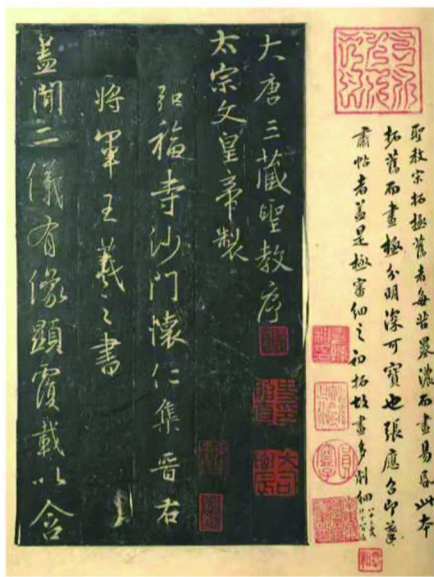 聖教宋拓極舊者每苦墨濃而畫易昏此本
拓舊而畫極分明深可寶也張應召印
帖者蓋是極審細之初拓故畫多削細
大唐三藏聖教序
太宗文皇帝製
弘福寺沙門懷仁集晉右
將軍王羲之書
蓋聞二儀有像顯覆載以含